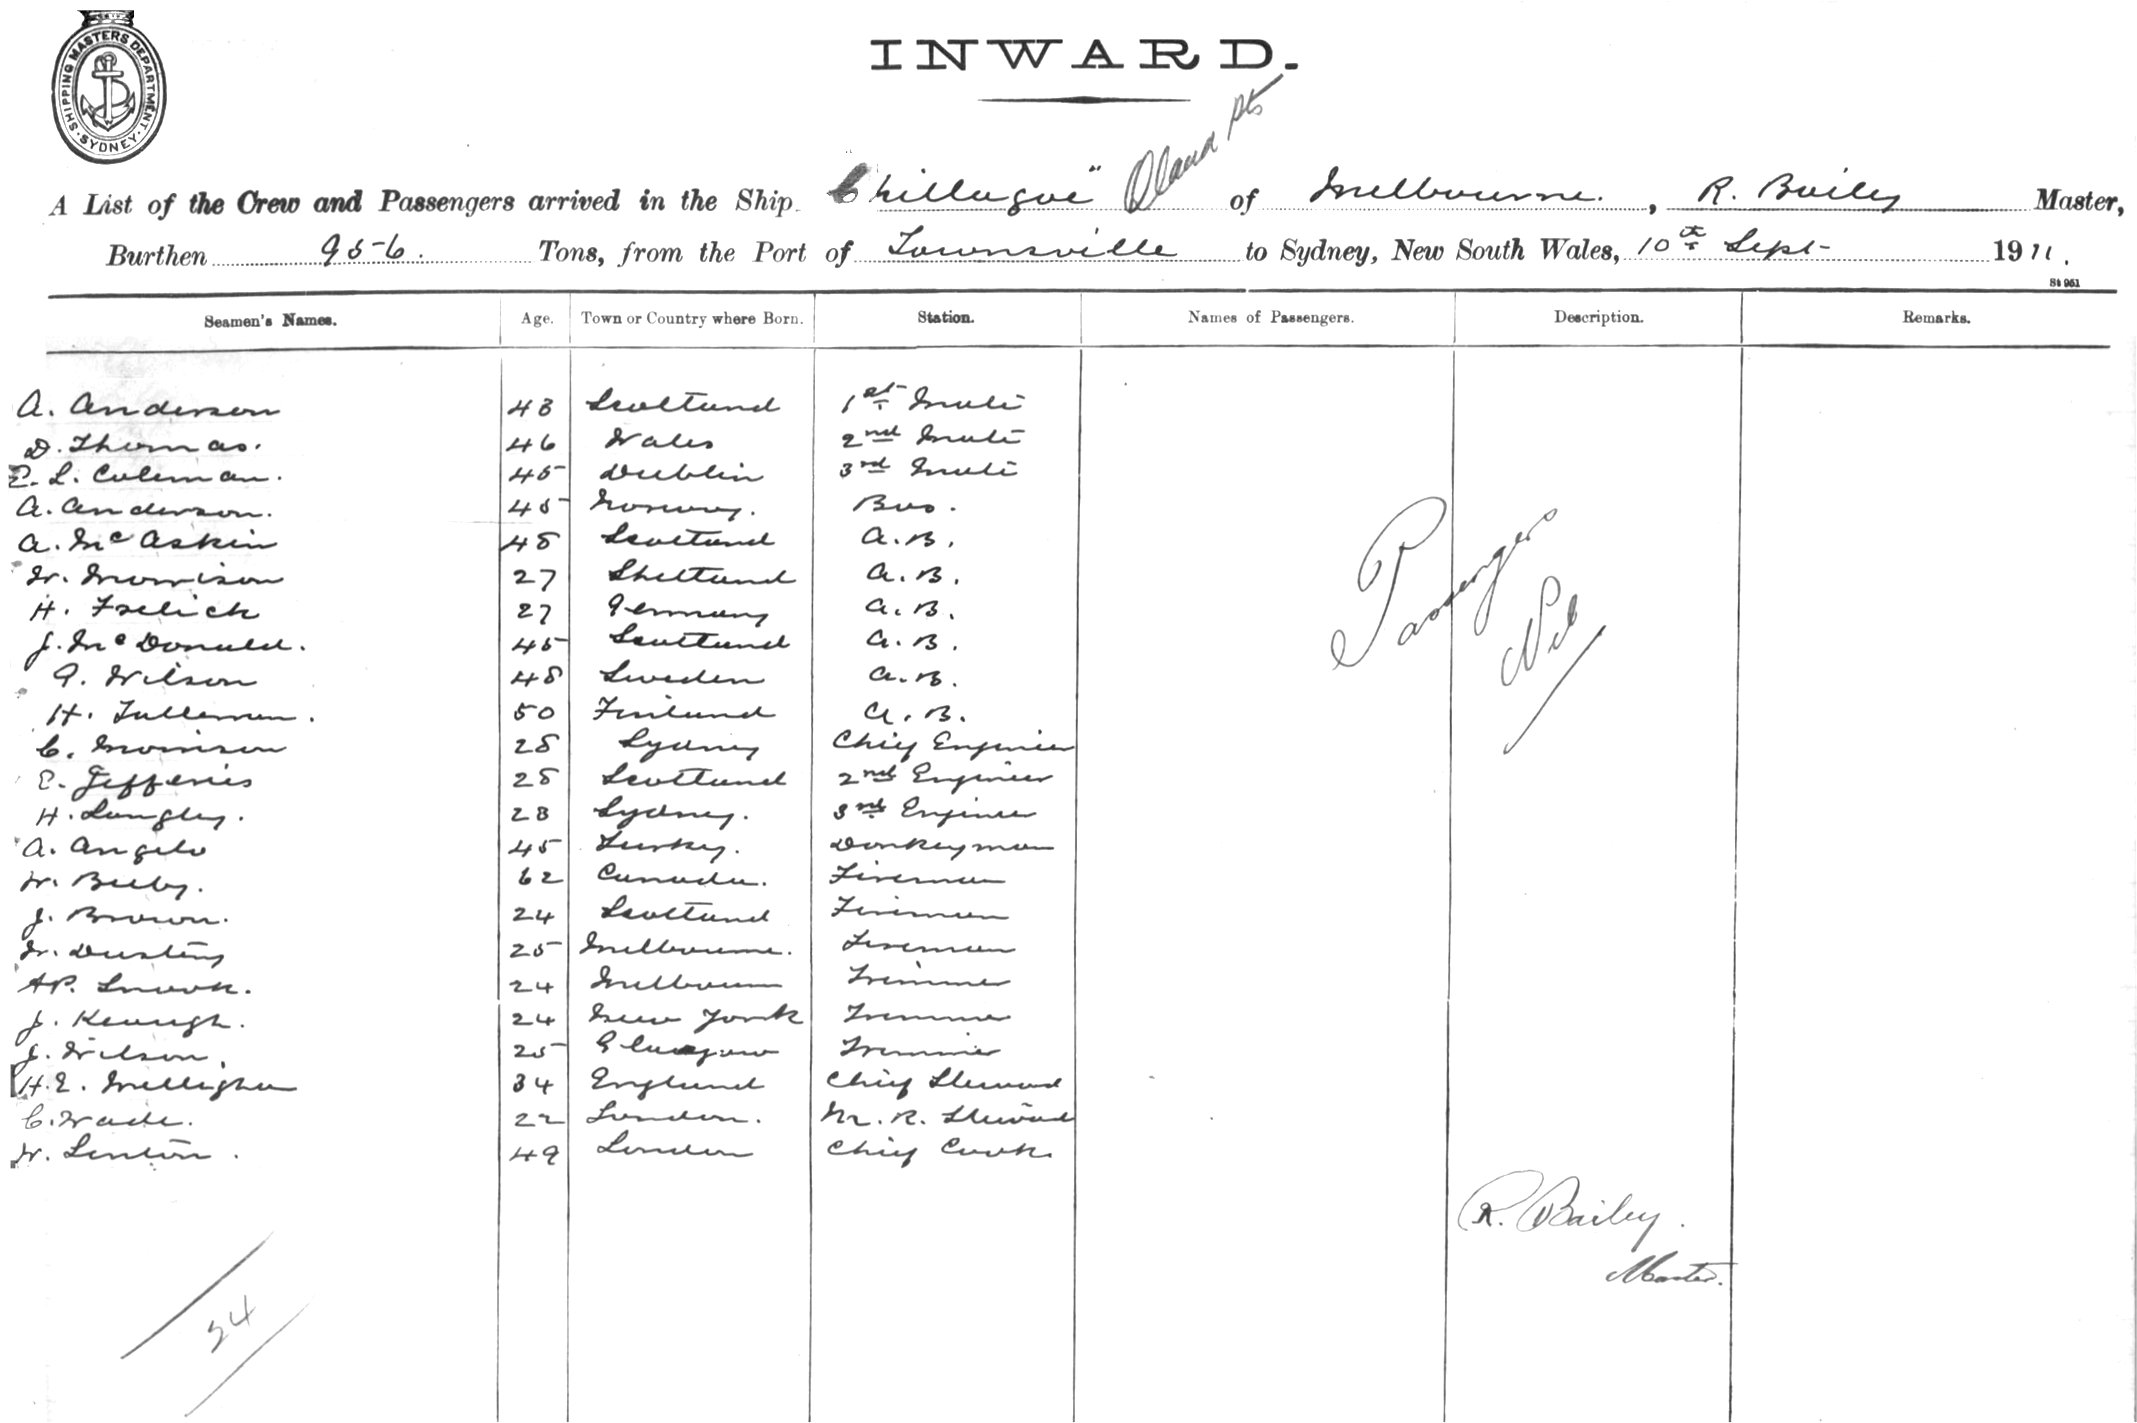 SHIPPING MASTERS DEPARTMENT. SYDNEY.
INWARD.
A List of the Crew and Passengers arrived in the Ship "Chillagoe" of Melbourne., R. Bailey Master,
Burthen 956. Tons, from the Port of Townsville to Sydney, New South Wales, 10th Sept 1911.
St 951
Seamen's Names. Age. Town or Country where Born. Station. Names of Passengers. Description. Remarks.
A. Anderson 43 Scotland 1st Mate
D. Thomas. 46 Wales 2nd Mate
E. L. Coleman. 45 Dublin 3rd Mate
A. Anderson. 45 Norway. Bos.
A. McAskin 48 Scotland A.B.
W. Morrison 27 Shetland A.B.
H. Frelick 27 Germany A.B.
J. McDonald. 45 Scotland A.B.
G. Wilson 48 Sweden A.B.
H. Tulleman. 50 Finland A.B.
C. Morrison 28 Sydney Chief Engineer
E. Jefferies 28 Scotland 2nd Engineer
H. Langley. 23 Sydney. 3rd Engineer
A. Angelo 45 Turkey. Donkeyman
W. Beeby. 62 Canada. Fireman
J. Brown. 24 Scotland Fireman
W. Dusting 25 Melbourne. Fireman
A.P. Snook. 24 Melbourn Trimmer
J. Keough. 24 New York Trimmer
J. Wilson. 25 Glasgow Trimmer
H.E. Millighan 34 England Chief Steward
C. Wade. 22 London. M. R. Steward
W. Linton. 49 London Chief Cook
Passengers
Nil
R. Bailey.
Master.
24